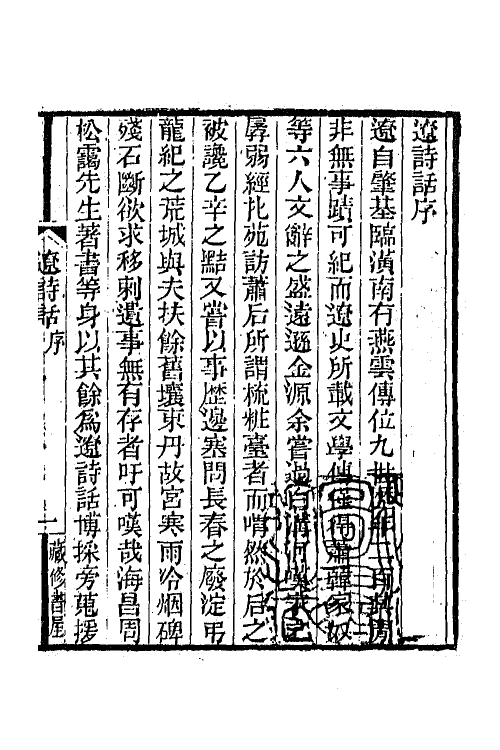 遼詩話序
遼自肇基臨潢南有燕雲傳位九世年二百其間
非無事蹟可紀而遼史所載文學傳僅得蕭韓家奴
等六人文辭之盛遠遜金源余嘗過白溝河嘆
孱弱經北苑訪蕭后所謂梳粧臺者而喟然於后之
被讒乙辛之點又嘗以事歷邊塞問長春之廢淀弔
龍紀之荒城與夫扶餘舊壤東丹故宮寒雨冷烟碑
殘石斷欲求移剌遺事無有存者吁可嘆哉海昌周
松靄先生著書等身以其餘爲遼詩話博採旁蒐援
遼詩話 序
一
藏修書屋